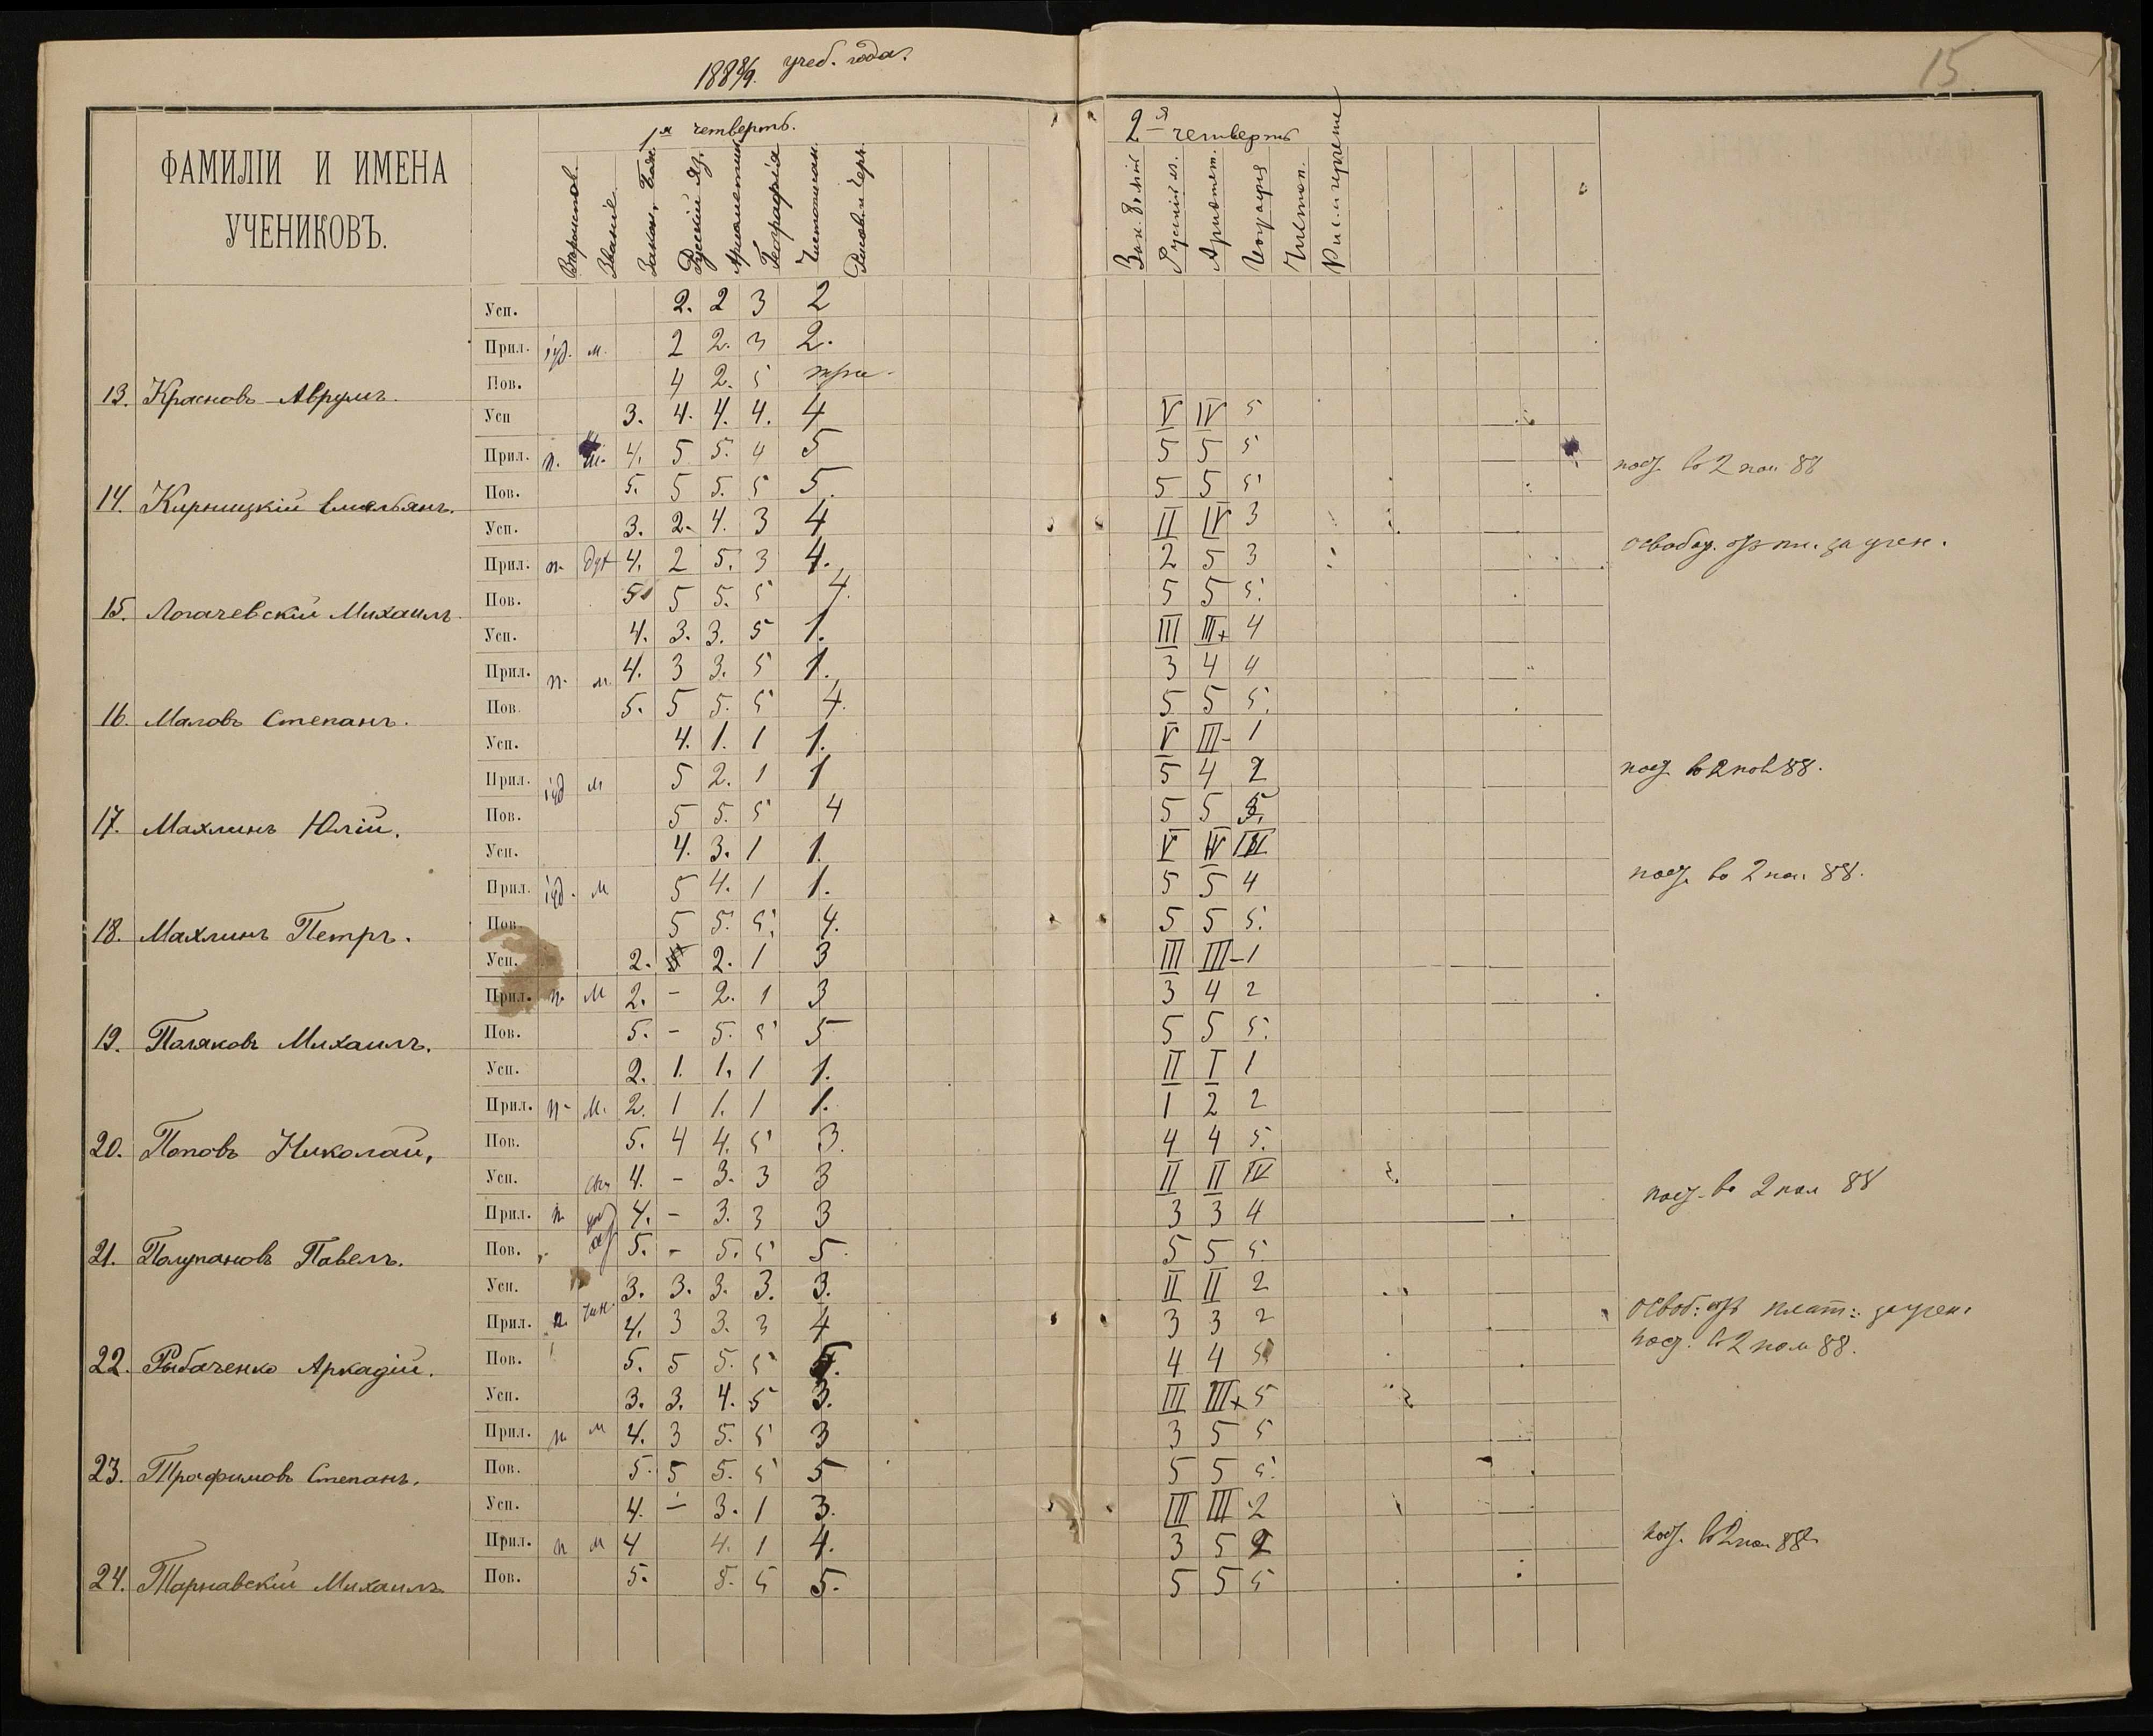 1888/9. учеб. года.
15
ФАМИЛІИ И ИМЕНА
УЧЕНИКОВЪ.
1я четверть.
Званіе.
Законъ Божій
Русскій Яз.
Ариѳметика
Географія
Чистописан.
Рисов. и Черч.
2-я четверть
Русскій яз.
Арифмет.
Географія
Чистоп.
Усп. 2. 2 3 2
Прил. іуд. м. 2 2. 3 2.
13. Красновъ Аврумъ. Пов. 4 2. 5 три
Усп 3. 4. 4. 4. 4 V IV 5
Прил. п. 4. 5 5. 4 5 5 5 5
14. Емельянъ. Пов. 5. 5 5. 5 5. 5 5 5
Усп. 3. 2. 4. 3 4 II IV 3
Прил. п. дух 4. 2 5. 3 4. 2 5 3 освобод. отъ пл. за учен.
15. Логачевскій Михаилъ Пов. 5 5 5. 5 4. 5 5 5.
Усп. 4. 3. 3. 5 1. III III+ 4
Прил. п. м. 4. 3 3. 5 1. 3 4 4
16. Маловъ Степанъ. Пов. 5. 5 5. 5 4. 5 5 5.
Усп. 4. 1. 1 1. V III- 1
Прил. іуд м 5 2. 1 1 5 4 2
17. Махлинъ Юлій. Пов. 5 5. 5 4 5 5 5.
Усп. 4. 3. 1 1. V IV III
Прил. іуд. м 5 4. 1 1. 5 5 4 во 2 пол 88.
18. Махлинъ Петръ. Пов. 5 5. 5. 4. 5 5 5.
Усп. 2. 2. 1 3 III III- 1
Прил. п. м 2. - 2. 1 3 3 4 2
19. Поляковъ Михаилъ. Пов. 5. - 5. 5 5 5 5 5.
Усп. 2. 1. 1. 1 1. II I 1
Прил. п- м. 2. 1 1. 1 1. 1 2 2
20. Поповъ Николай, Пов. 5. 4 4. 5 3. 4 4 5.
Усп. 4. - 3. 3 3 II II IV
Прил. п 4. - 3. 3 3 3 3 4 во 2 пол 88
21. Полупановъ Павелъ. Пов. 5. - 5. 5 5 5 5 5.
Усп. 3. 3. 3. 3. 3. II II 2
Прил. п. чин. 4. 3 3. 3 4 3 3 2 освоб: отъ плат: за учен.
22. Рыбаченко Аркадій. Пов. 5. 5 5. 5 4 4 5 2 пол 88.
Усп. 3. 3. 4. 5 3. III III+ 5
Прил. п. м 4. 3 5. 5 3 3 5 5
23. Трофимовъ Степанъ. Пов. 5. 5 5. 5 5 5 5 5.
Усп. 4. - 3. 1 3. III III 2
Прил. п м 4 4. 1 4. 3 5 2
24. Тарнавскій Михаилъ Пов. 5. 5. 5 5. 5 5 5